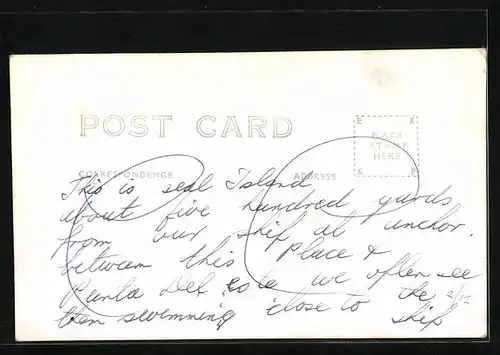 POST CARD
E K
PLACE
STAMP
HERE
K P
CORRESPONDENCE
ADDRESS
This is seal Island
about five hundred yards
from our ship at anchor.
between this place &
Punta Del este we often see
then swimming close to the ship
2/12